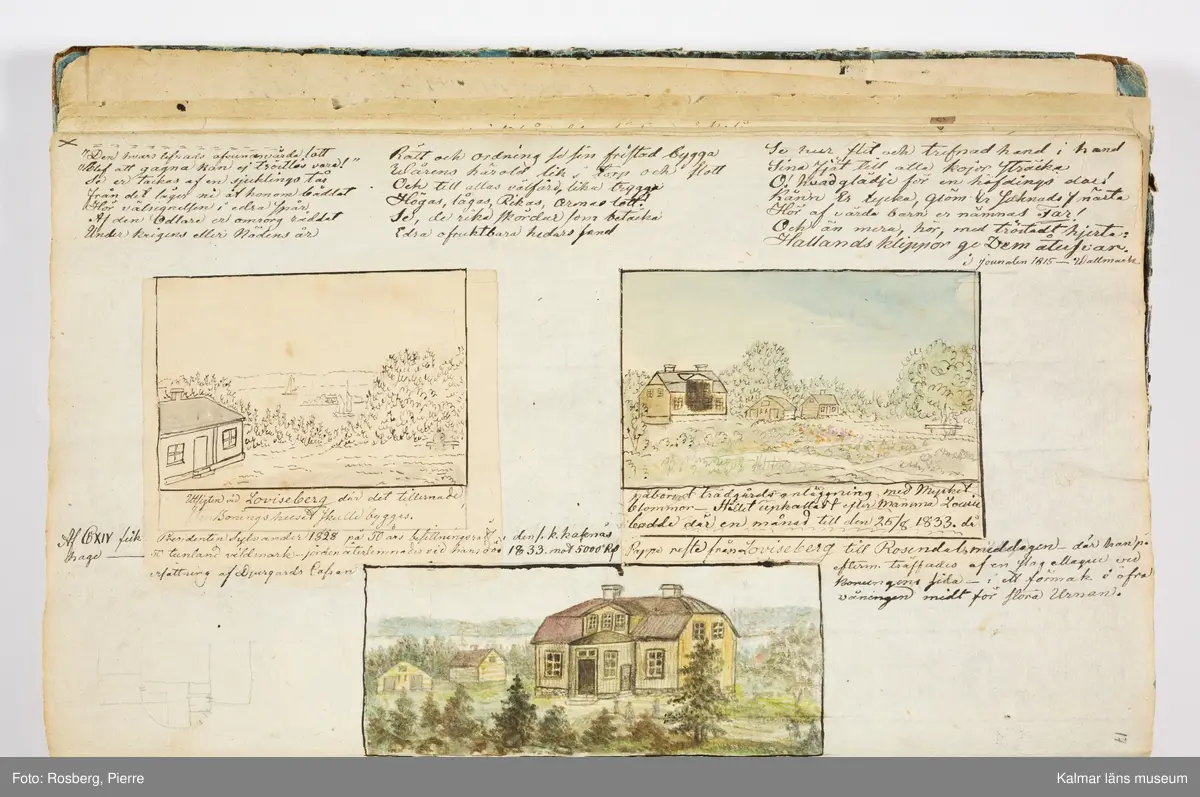 "Den hvars lefnads afvundsvärda lott
Blef att gagna kan ej tröstlös vara!"
Se er täckas af en sjuklings tår
från det läger ni åt honom bäddat
Hör välsignelsen i edra spår
Af den Odlare er omsorg räddat
Under krigens eller Nödens år
Rätt och ordning se sin fristad bygga
Wårens härold lik i Torp och slott
Och till allas välfärd, lika trygga
Höga, låga, Rika, armas lott!
Se, de rika skördar som betäcka
Edra ofruktbara hedars sand
Se hur flit och trefnad hand i hand
Sina fjät till alla kojor sträcka
O! hvad glädje för en höfdings dar!
Känn Er lycka, glöm Er saknads smärta
Hör af värda barn er nämnas Far!
Och än mera, hör, med tröstadt hjerta:
Hallands klippor ge Dem återsvar.
i Journalen 1815 — Wallmarks
Utsigten vid Loviseberg där det tillernade
Boningshuset skulle byggas.
påbörjad trädgårds anläggning med Mycket
blommor — Stället upkalladt efter Mamma Lovise
bodde där en månad till den 25/8 1833. då
Af C XIV fick
Presidenten Sylvander 1828 på 50 års besittningsrätt den s. k. kafenäs
50 tunland vildmark — jorden återlemnades vid hans död 1833. mot 5000 Rd
ersättning af Djurgårds Cassan
Pappa reste från Loviseberg till Rosendals middagen — där Han på
efterm. träffades af en slag attaque vid
Konungens sida — i ett förmak i öfra
våningen midt för stora Urnan.
17
Foto: Rosberg, Pierre
Kalmar läns museum